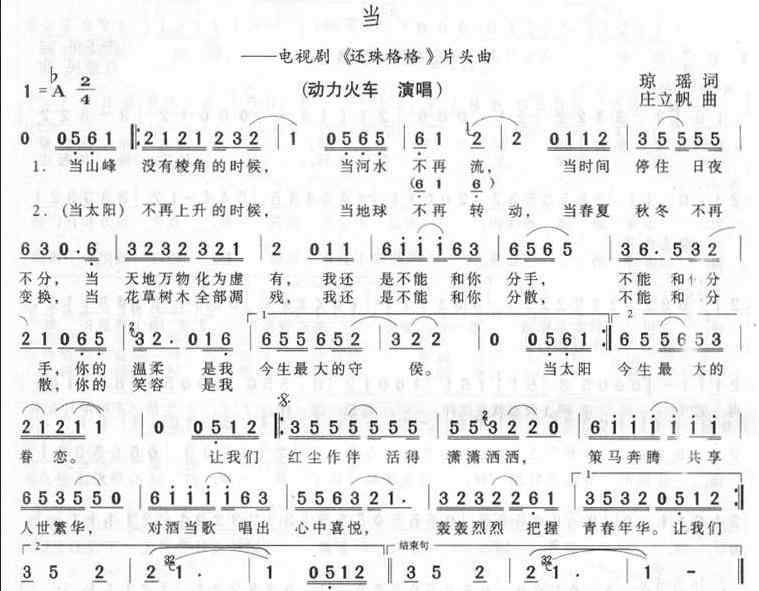 当
——电视剧《还珠格格》片头曲
1=♭A 2/4
(动力火车 演唱)
琼瑶 词
庄立帆 曲
0 0561 2121232 2 1 0565 61 2 2 0112 35555
1. 当山峰 没有棱角的时候, 当河水 不再 流, 当时间 停住 日夜
(6 1 6)
2. (当太阳) 不再上升的时候, 当地球 不再 转 动, 当春夏 秋冬 不再
630·6 3232321 2 011 6iii63 6565 36·532
不分, 当 天地万物化为虚 有, 我还 是不能 和你 分手, 不能 和你 分
变换, 当 花草树木全部凋 残, 我还 是不能 和你 分散, 不能 和你 分
21065 32·016 655552 322 0 0561 65555
手, 你的 温柔 是我 今生最大的守 侯。 当太阳 今生最 大的
散, 你的 笑容 是我
2121 1 0 0512 3555555 553220 6iiiii
眷 恋。 让我们 红尘作伴 活得 潇潇洒洒, 策马奔腾 共享
6535550 6iiiii63 5556321· 3232261 35320512
人世繁华, 对酒当歌 唱出 心中喜悦, 轰轰烈烈 把握 青春年华。让我们
结束句
35 2 2 1· 1 0512 35 2 2 1· 1 0